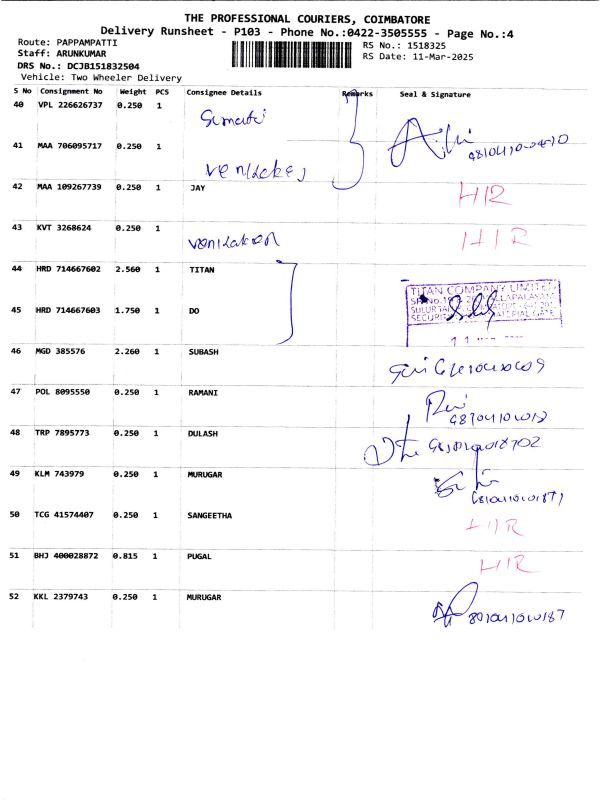 THE PROFESSIONAL COURIERS, COIMBATORE
Delivery Runsheet - P103 - Phone No.:0422-3505555 - Page No.:4
Route: PAPPAMPATTI
RS No.: 1518325
Staff: ARUNKUMAR
RS Date: 11-Mar-2025
DRS No.: DCJB151832504
Vehicle: Two Wheeler Delivery
S No Consignment No Weight PCS Consignee Details Remarks Seal & Signature
40 VPL 226626737 0.250 1
41 MAA 706095717 0.250 1
42 MAA 109267739 0.250 1 JAY HIR
43 KVT 3268624 0.250 1 HIR
44 HRD 714667602 2.560 1 TITAN
TITAN COMPANY LIMITED
45 HRD 714667603 1.750 1 DO
46 MGD 385576 2.260 1 SUBASH
47 POL 8095550 0.250 1 RAMANI
48 TRP 7895773 0.250 1 DULASH
49 KLM 743979 0.250 1 MURUGAR
50 TCG 41574407 0.250 1 SANGEETHA HIR
51 BHJ 400028872 0.815 1 PUGAL HIR
52 KKL 2379743 0.250 1 MURUGAR